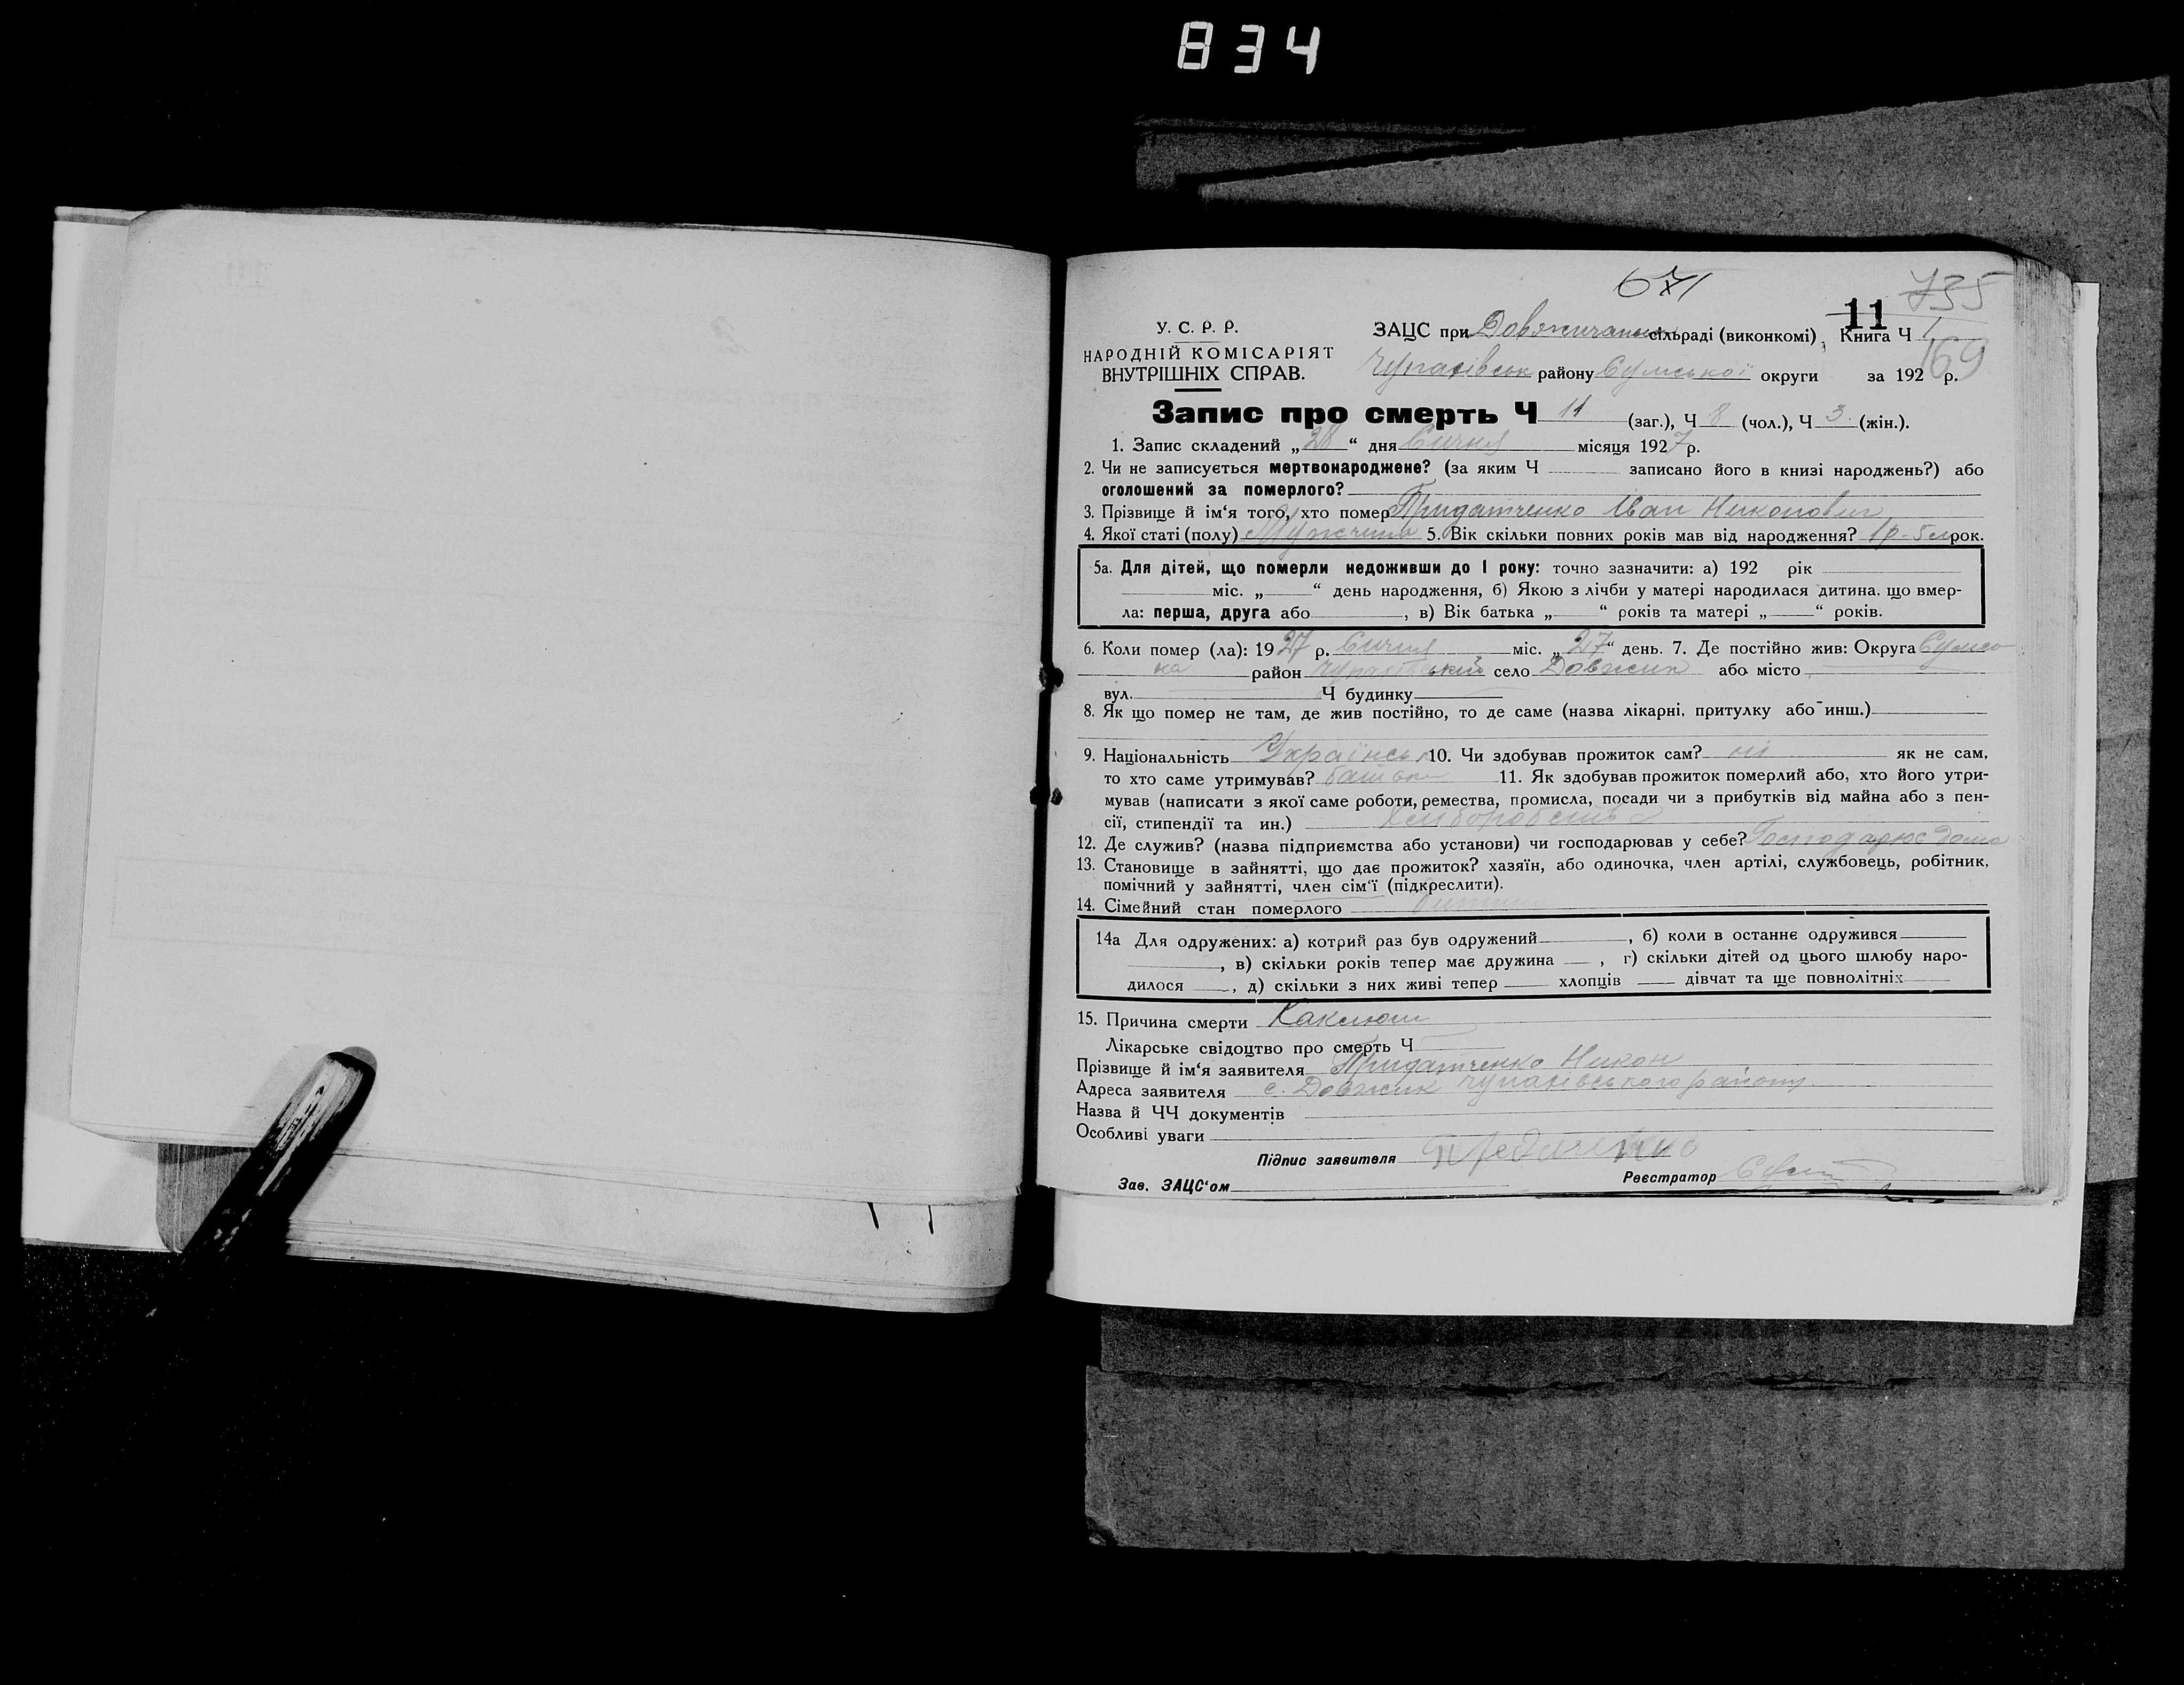 834
671
735
11
169
У. С. Р. Р.
НАРОДНІЙ КОМІСАРІЯТ
ВНУТРІШНІХ СПРАВ.
ЗАЦС при сільраді (виконкомі), Книга Ч 1
району Сумської округи за 192 р.
Запис про смерть Ч 11 (заг.), Ч 8 (чол.), Ч 3 (жін.).
1. Запис складений „28“ дня Січня місяця 1927 р.
2. Чи не записується мертвонароджене? (за яким Ч записано його в книзі народжень?) або
оголошений за померлого?
3. Прізвище й ім‘я того, хто помер Придатченко Іван Никонович
4. Якої статі (полу) Мужчина 5. Вік скільки повних років мав від народження? 1р-5м рок.
5а. Для дітей, що померли недоживши до 1 року: точно зазначити: а) 192 рік
міс. „ “ день народження, б) Якою з лічби у матері народилася дитина, що вмер-
ла: перша, друга або , в) Вік батька „ “ років та матері „ “ років.
6. Коли помер (ла): 1927 р. Січня міс. „27“ день. 7. Де постійно жив: Округа Сумсь
ка район село Довжик або місто
вул. Ч будинку
8. Як що помер не там, де жив постійно, то де саме (назва лікарні, притулку або инш.)
9. Національність Українськ 10. Чи здобував прожиток сам? ні як не сам,
то хто саме утримував? батько 11. Як здобував прожиток померлий або, хто його утри-
мував (написати з якої саме роботи, ремества, промисла, посади чи з прибутків від майна або з пен-
сії, стипендії та ин.) Хліборобства
12. Де служив? (назва підприємства або установи) чи господарював у себе? Господарює дома
13. Становище в зайнятті, що дає прожиток? хазяїн, або одиночка, член артілі, службовець, робітник,
помічний у зайнятті, член сім‘ї (підкреслити).
14. Сімейний стан померлого
14а Для одружених: а) котрий раз був одружений , б) коли в останнє одружився
, в) скільки років тепер має дружина , г) скільки дітей од цього шлюбу наро-
дилося , д) скільки з них живі тепер хлопців дівчат та ще повнолітніх
15. Причина смерти Каклюш
Лікарське свідоцтво про смерть Ч
Прізвище й ім‘я заявителя Придатченко Никон
Адреса заявителя с. Довжик Чупахівського району
Назва й ЧЧ документів
Особливі уваги
Підпис заявителя
Зав. ЗАЦС‘ом Реєстратор